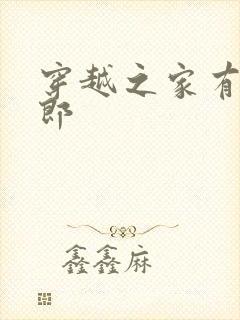 穿越之家有
郎
鑫鑫麻